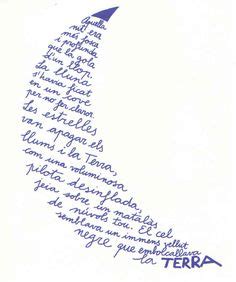 Aquella
nit era
més fosca
i profunda
que la gola
d'un llop.
La lluna
s'havia ficat
en un cove
per no fer claror.
Les estrelles
van apagar els
llums i la Terra,
com una voluminosa
pilota desinflada
jeia sobre un matalàs
de núvols tou. El cel
semblava un immens vellut
negre que embolcallava
la TERRA